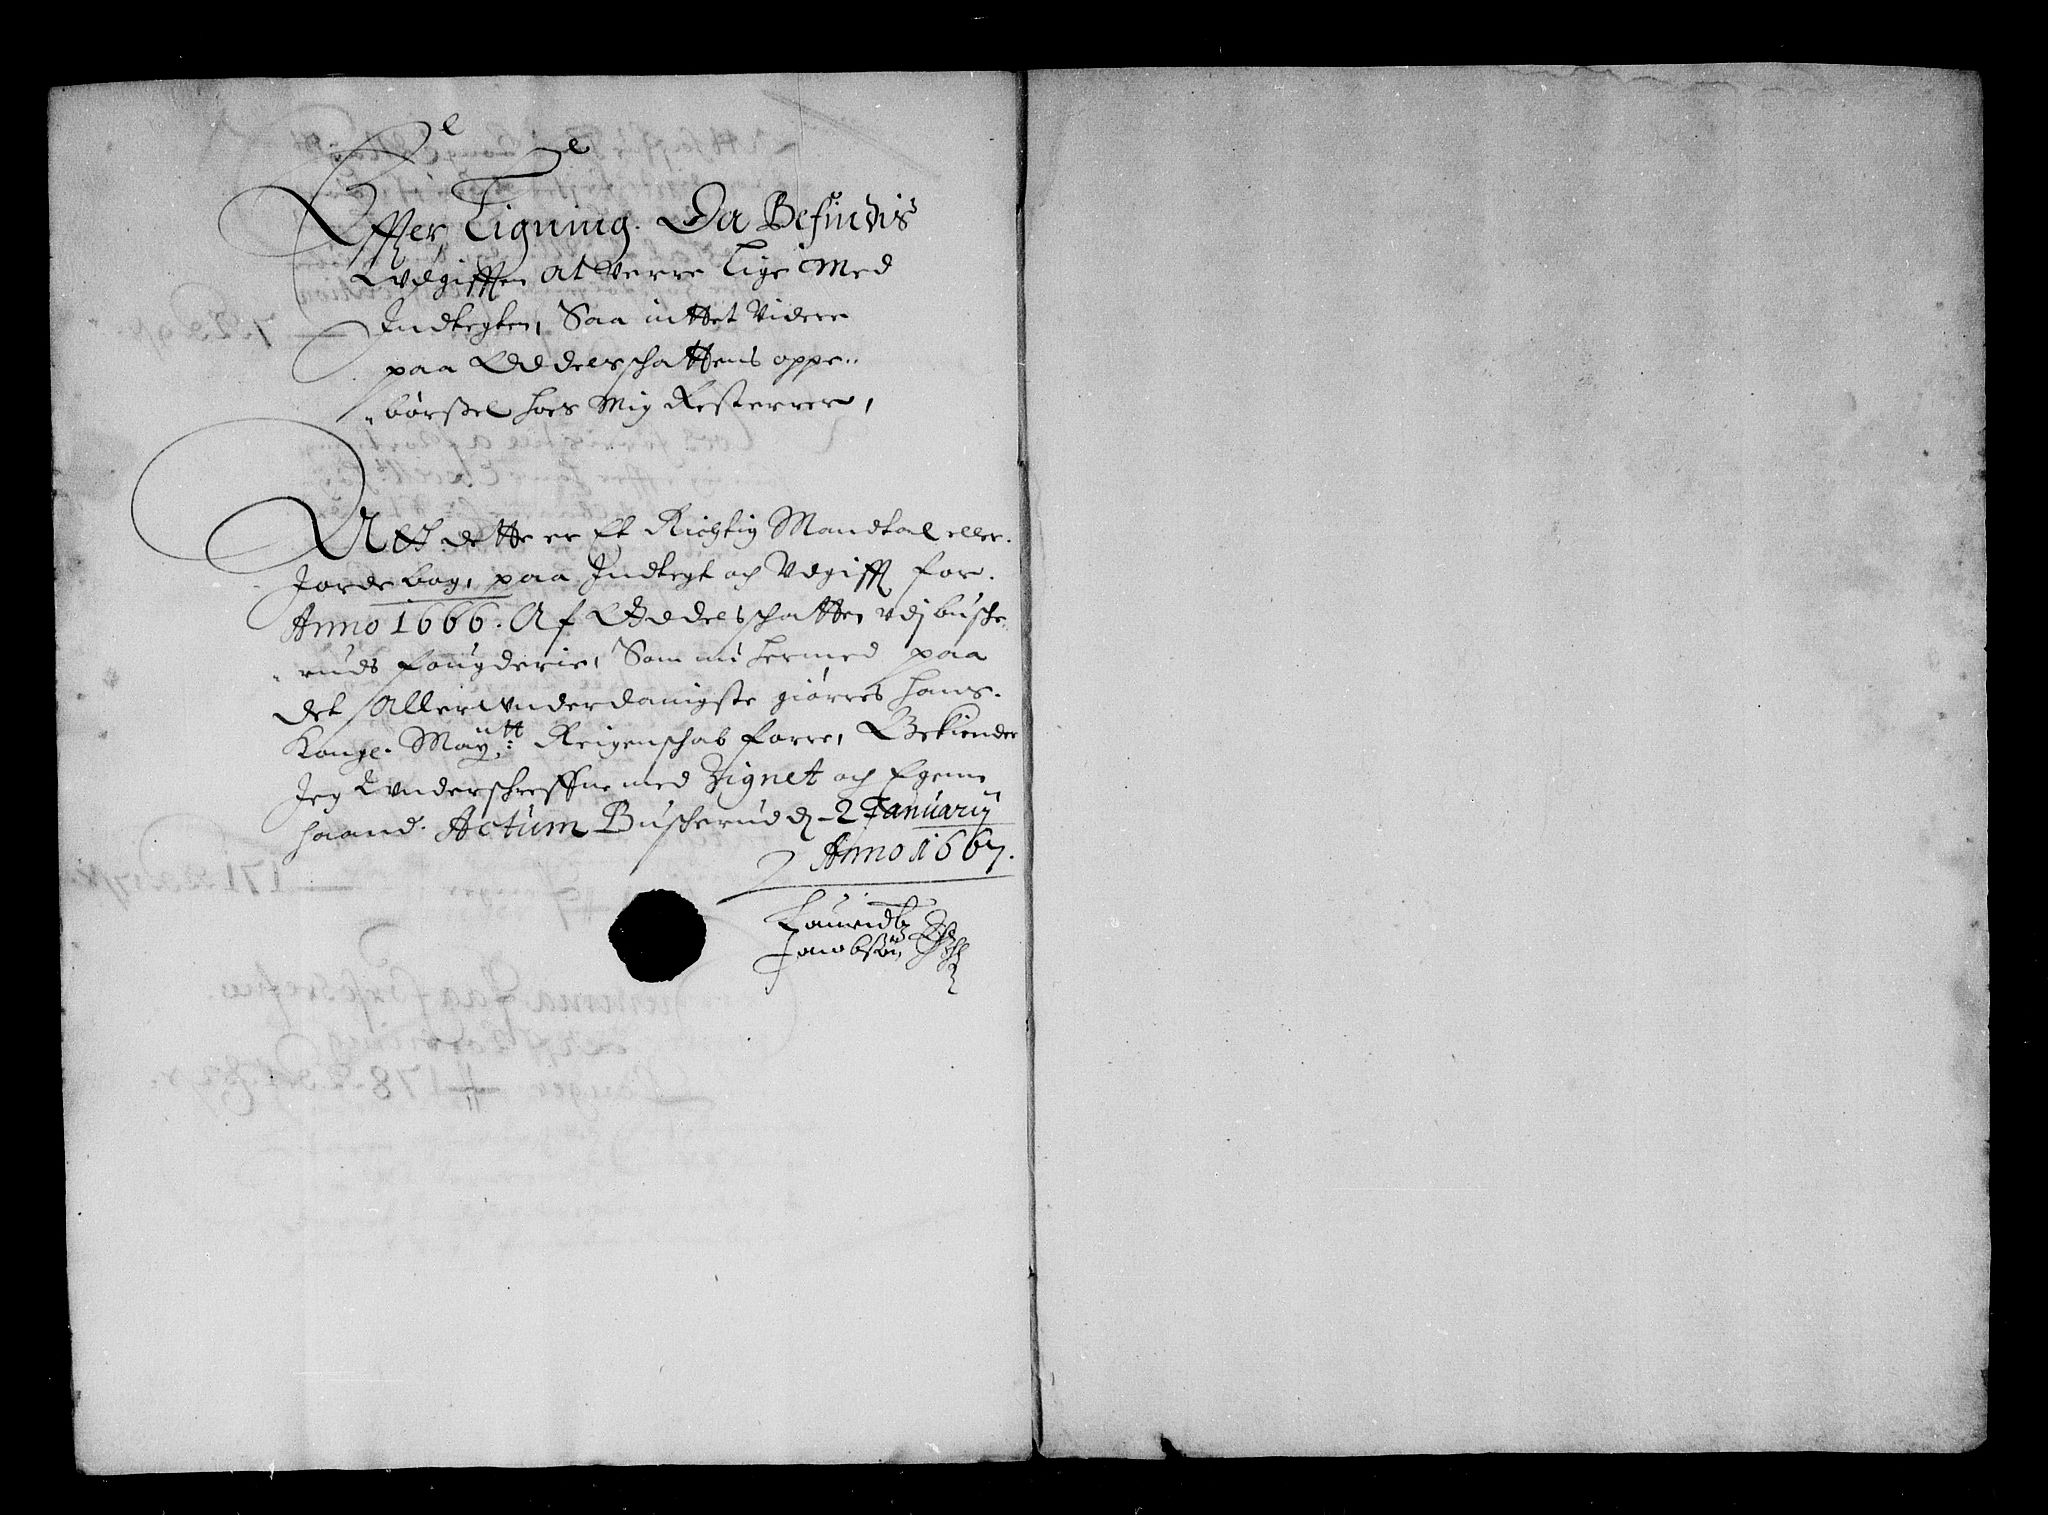 Effter Ligning. Da Befindis
Udgifften at verre Lige Med
Indtegten, Saa inttet Videre
paa Oddelsschattens oppe„
„børßel hoes Mig Resterrer,
Att dette er Et Richtig Mandtal eller.
Jordebog, paa Indtegt och Udgifft for.
Anno 1666. Af Oddelsschatten udj busche„
„ruds fougderie, Som nu hermed paa
det Aller underdanigste giørres hans.
Kongl. Maytt: Reigenschab forre, Bekiender
Jeg Underschreffne med Zignet och Egenn
haand. Actum Buscherud dj 2 Januarij
Anno 1667.
Lauridtz
Jacobsøn